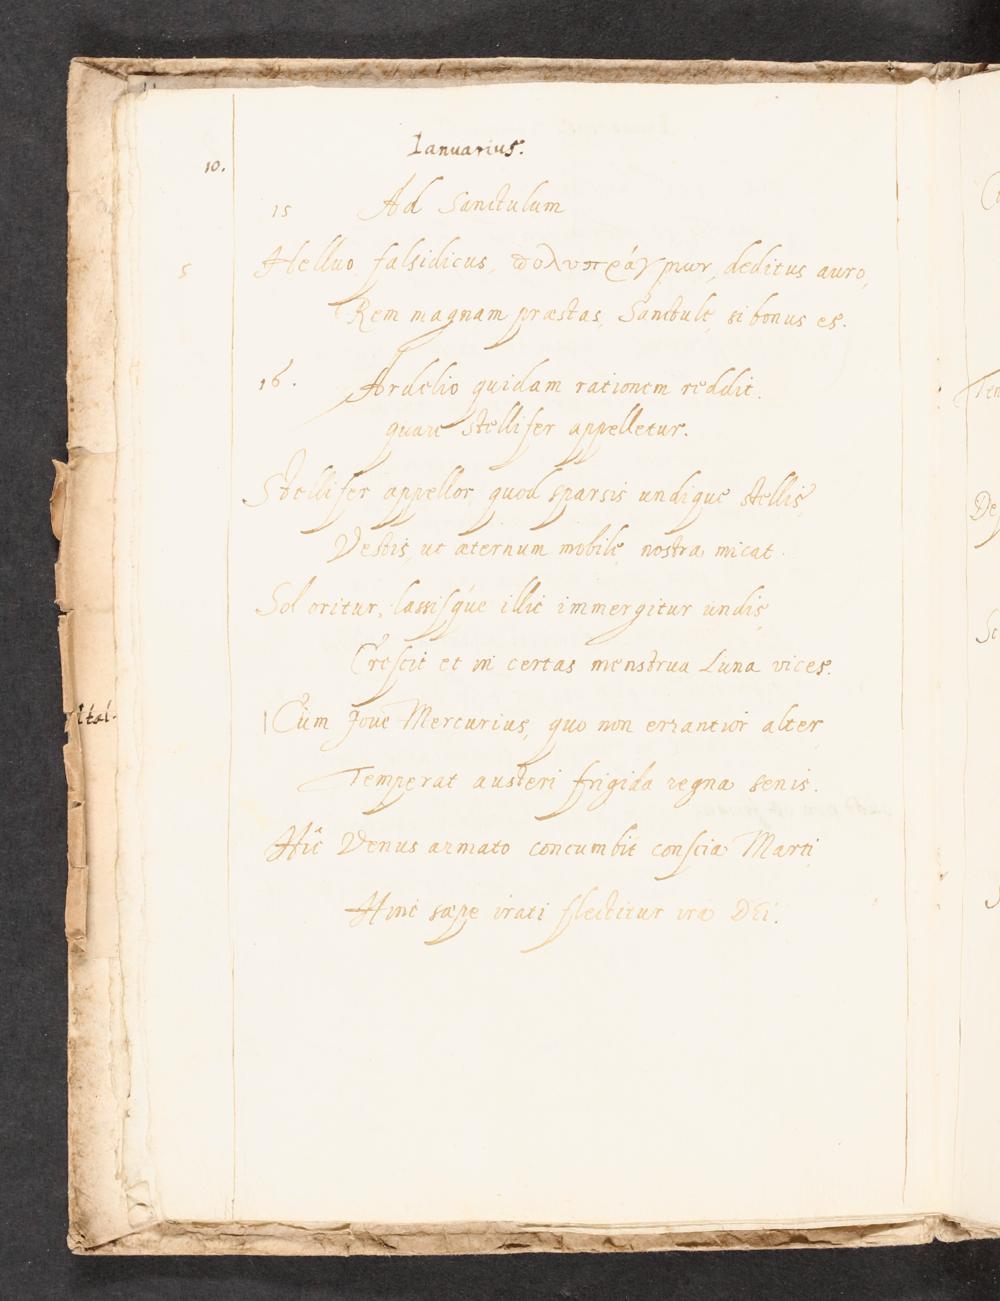 10.
Ianuarius.
15 Ad Sanctulum
5 Helluo falsidicus, πολυπράγμων, deditus auro,
Rem magnam præstas, Sanctule, si bonus es.
16. Ardelio quidam rationem reddit.
quare Stellifer appelletur.
Stellifer appellor quod sparsis undique stellis,
Vestis, ut æternum mobile, nostra micat.
Sol oritur, lassisque illic immergitur undis,
Crescit et in certas menstrua Luna vices.
Cùm Joue Mercurius, quo non errantior alter,
Temperat austeri frigida regna senis.
Hîc Venus armato concumbit conscia Marti,
Hinc sæpe irati flectitur ira DEi.
Ital.